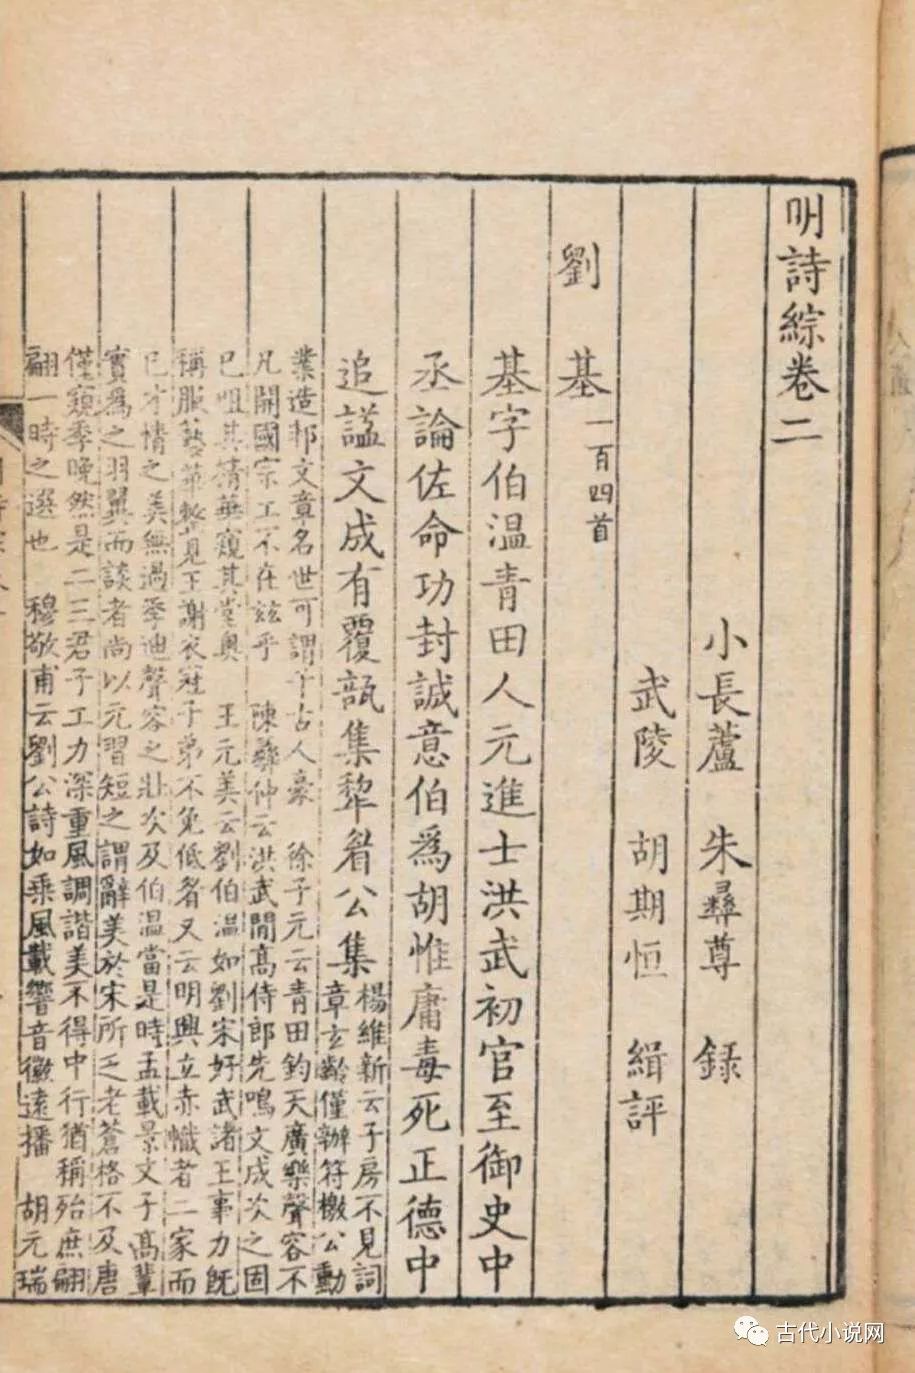 明詩綜卷二
小長蘆 朱彝尊 録
武陵 胡期恒 緝評
劉基 一百四首
基字伯温青田人元進士洪武初官至御史中
丞論佐命功封誠意伯爲胡惟庸毒死正德中
追諡文成有覆瓿集犂眉公集
楊維新云子房不見詞
章玄齡僅辦符檄公勳
業造邦文章名世可謂千古人豪 徐子元云青田鈞天廣樂聲容不
凡開國宗工不在兹乎 陳彝仲云洪武間高侍郎先鳴文成次之固
已咀其精華窺其堂奥 王元美云劉伯温如劉宋好武諸王事力旣
稱服藝華整見王謝衣冠子弟不免低眉又云明興立赤幟者二家而
已才情之美無過季迪聲容之壯次及伯温當是時孟載景文子高輩
實爲之羽翼而談者尚以元習短之謂辭美於宋所乏老蒼格不及唐
僅窺季晚然是二三君子工力深重風調諧美不得中行猶稱殆庶翩
翩一時之選也 穆敬甫云劉公詩如乘風載響音徽遠播 胡元瑞
古代小说网